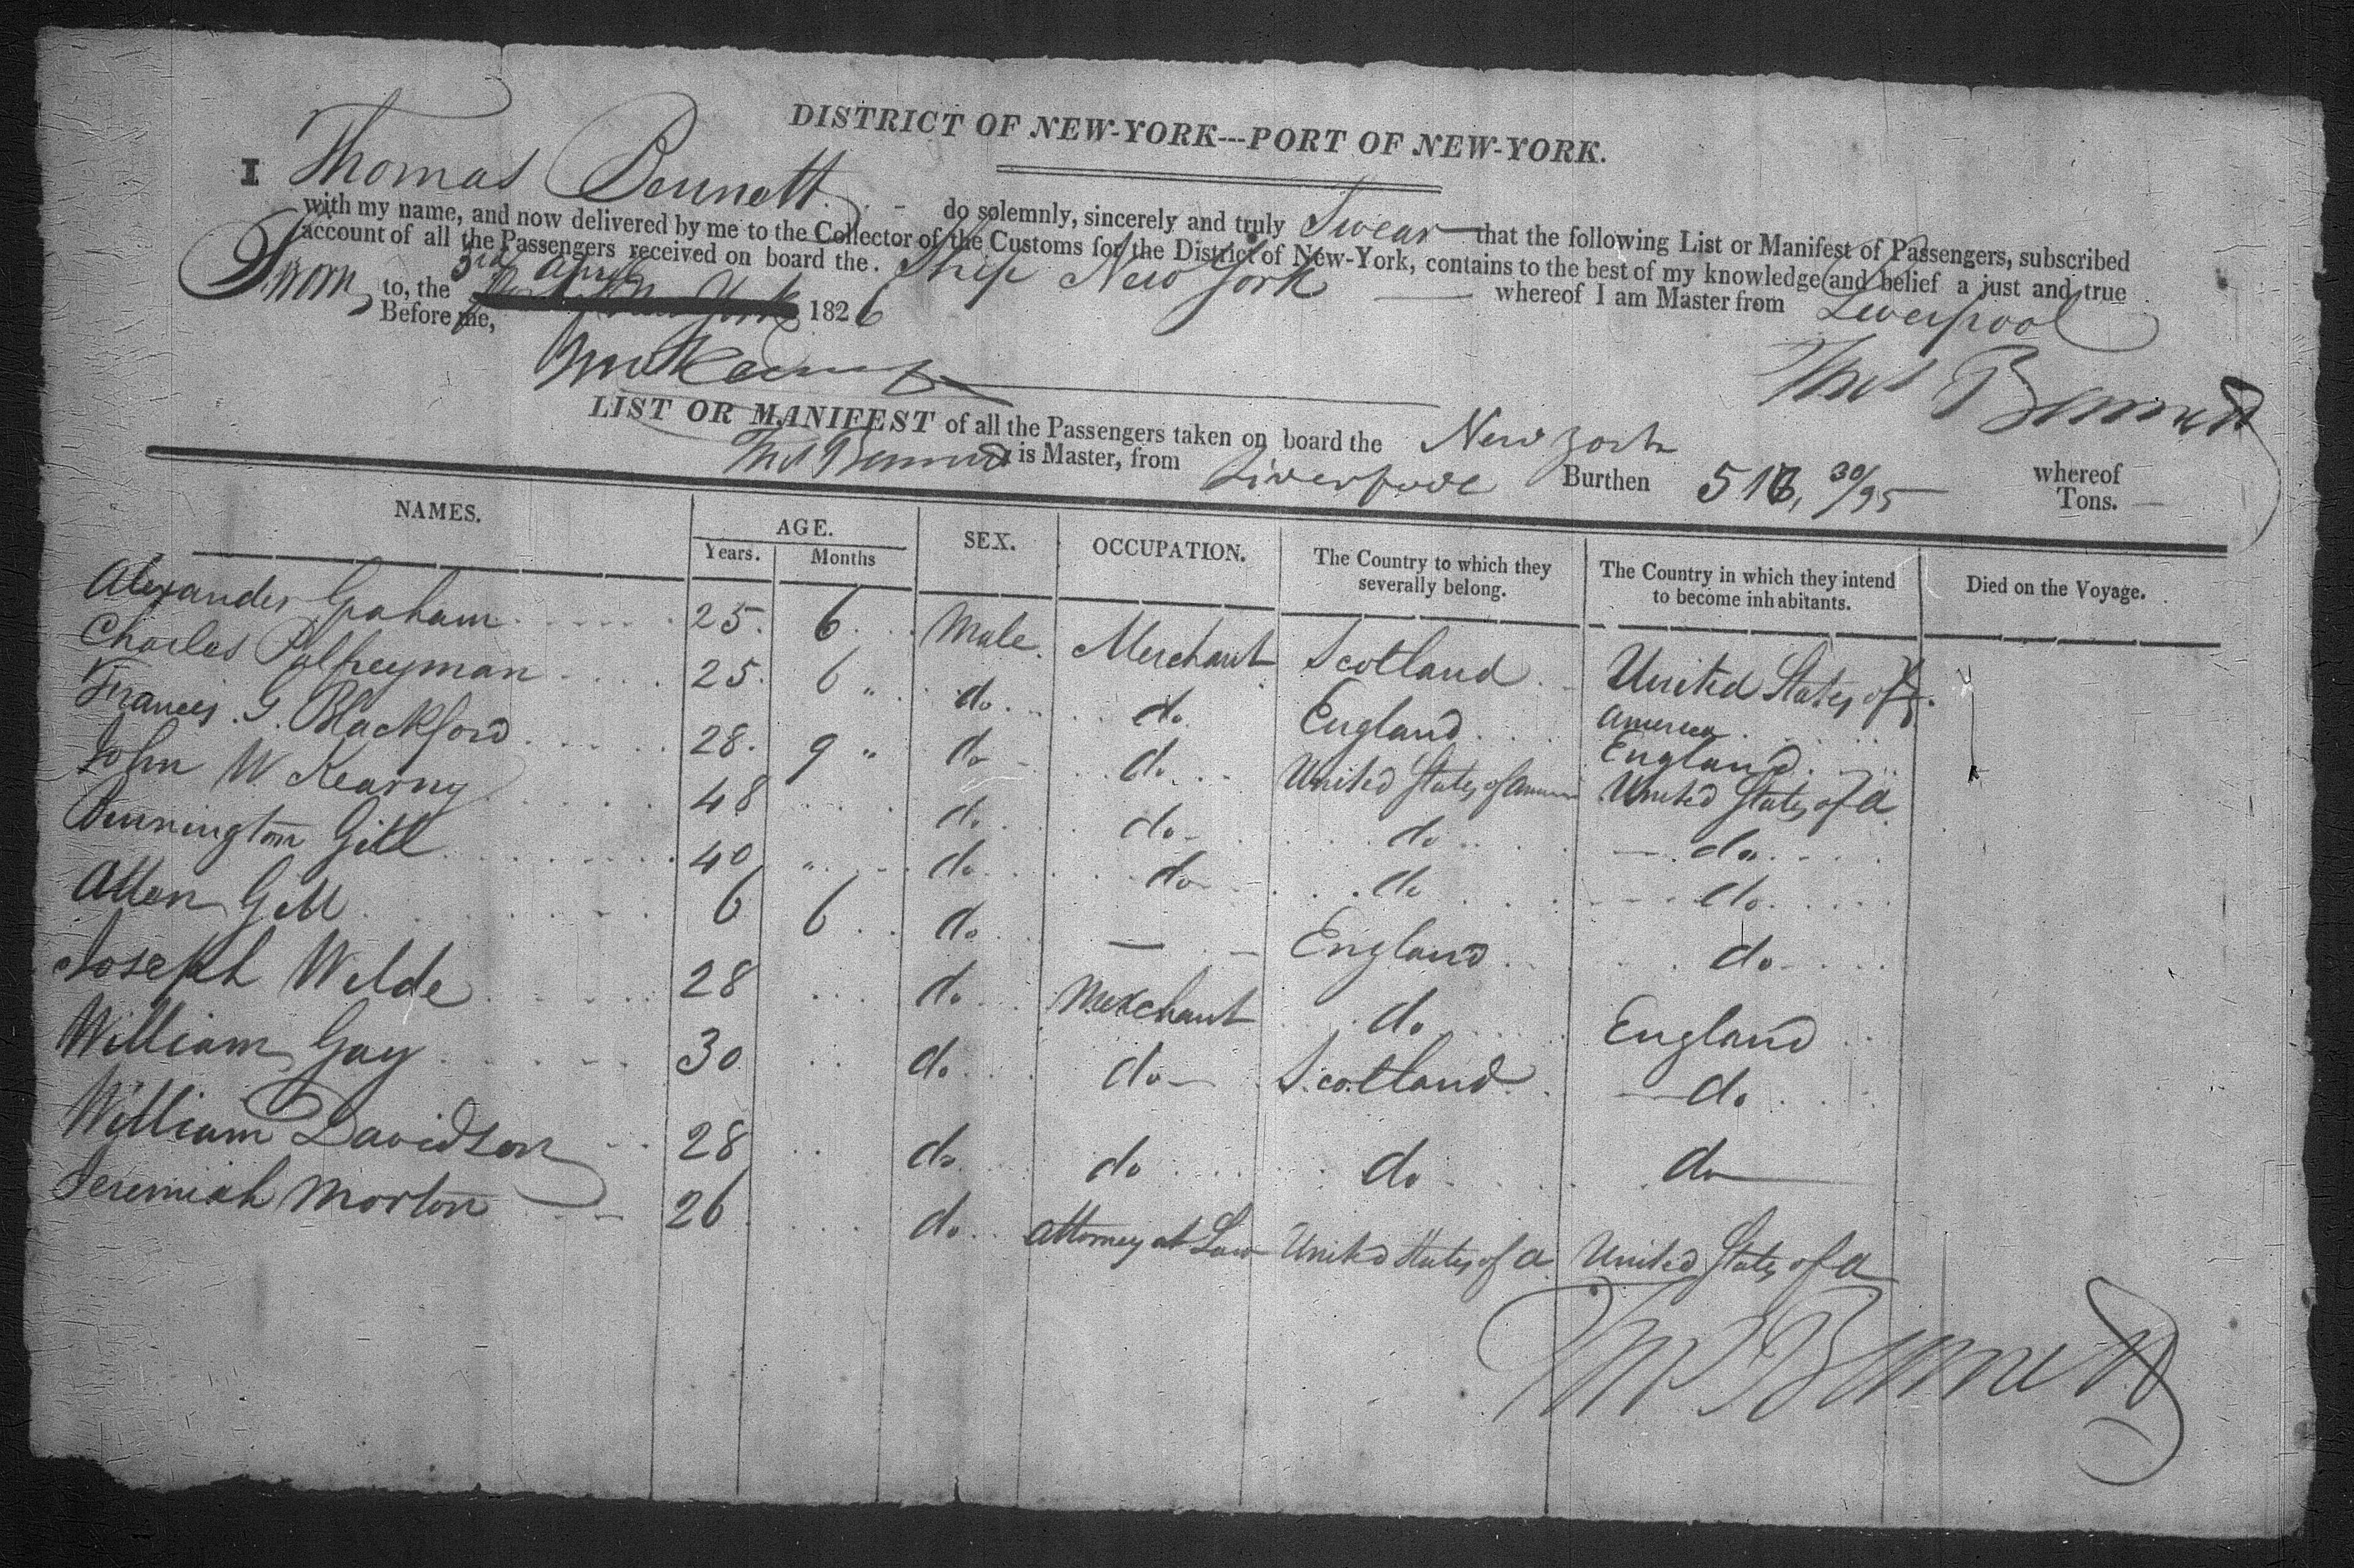 DISTRICT OF NEW-YORK---PORT OF NEW-YORK.
I Thomas Bennett do solemnly, sincerely and truly Swear that the following List or Manifest of Passengers, subscribed
with my name, and now delivered by me to the Collector of the Customs for the District of New-York, contains to the best of my knowledge and belief a just and true
account of all the Passengers received on board the Ship New York whereof I am Master from Liverpool
Sworn to, the 3rd April 1826
Before me,
Thos Bennett
LIST OR MANIFEST of all the Passengers taken on board the New York whereof
Thos Bennett is Master, from Liverpool Burthen 516, 30/95 Tons.
NAMES. AGE. SEX. OCCUPATION. The Country to which they severally belong. The Country in which they intend to become inhabitants. Died on the Voyage.
Years. Months
Alexander Graham 25. 6 Male. Merchant Scotland United States of America
Charles Palfreyman 25. 6 " do. do. England England
Francis. G. Blackford 28. 9 " do do United States of America United States of A
John W. Kearny 48 do do do do
Bennington Gill 40 " do do do do
Allen Gill 6 6 do — England do
Joseph Wilde 28 do. Merchant do England
William Gay 30 do do Scotland do
William Davidson 28 do do do do
Jeremiah Morton 26 do Attorney at Law United States of A United States of A
Thos Bennett